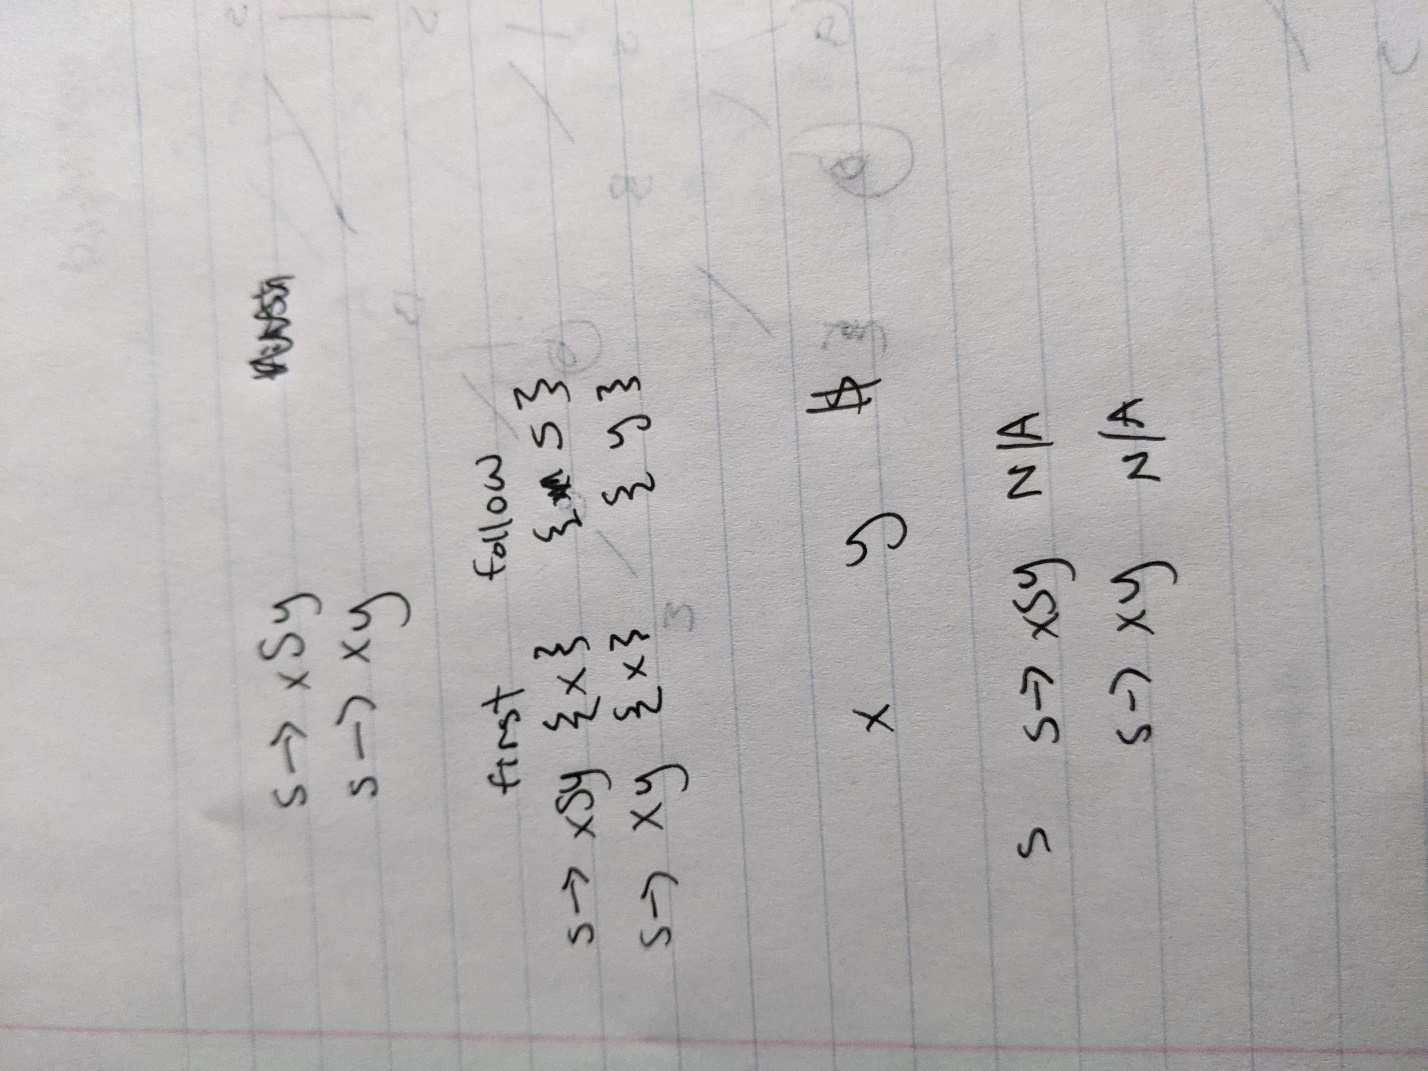 S → xSy
S → xy
first follow
S → xSy {x} {S}
S → xy {x} {y}
x y $
S S → xSy N/A
S → xy N/A